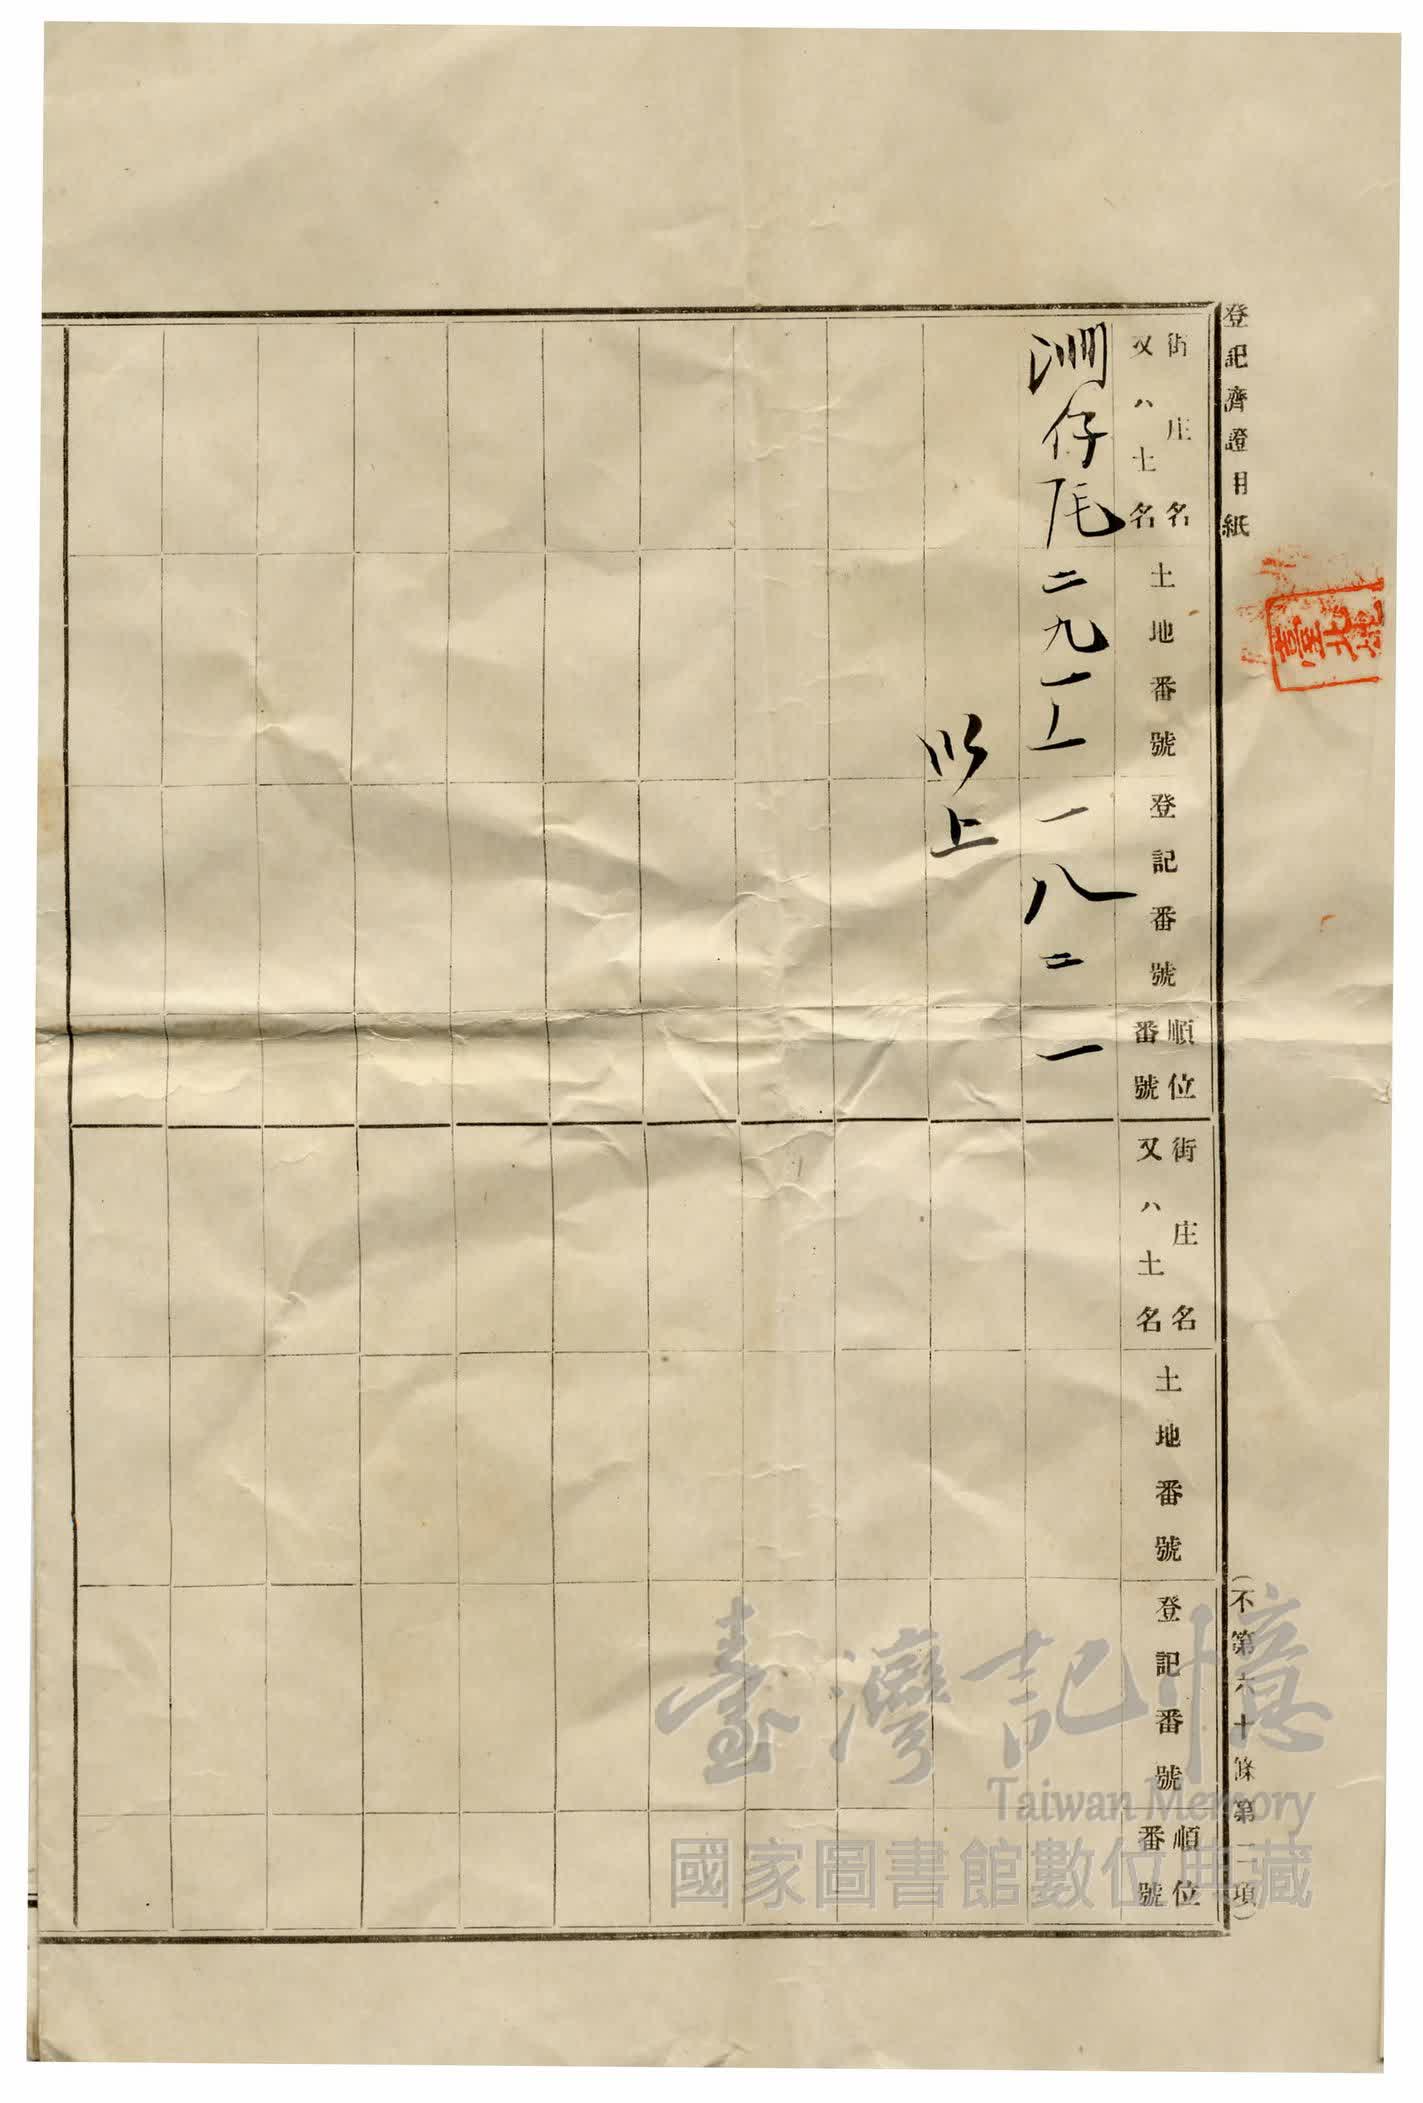 登記濟證用紙
(不第六十條第一項)
街庄名
又ハ土名
土地番號
登記番號
順位
番號
街庄名
又ハ土名
土地番號
登記番號
順位
番號
洲仔尾 二九一ノ一 一八二 一
以上
臺灣記憶
Taiwan Memory
國家圖書館數位典藏